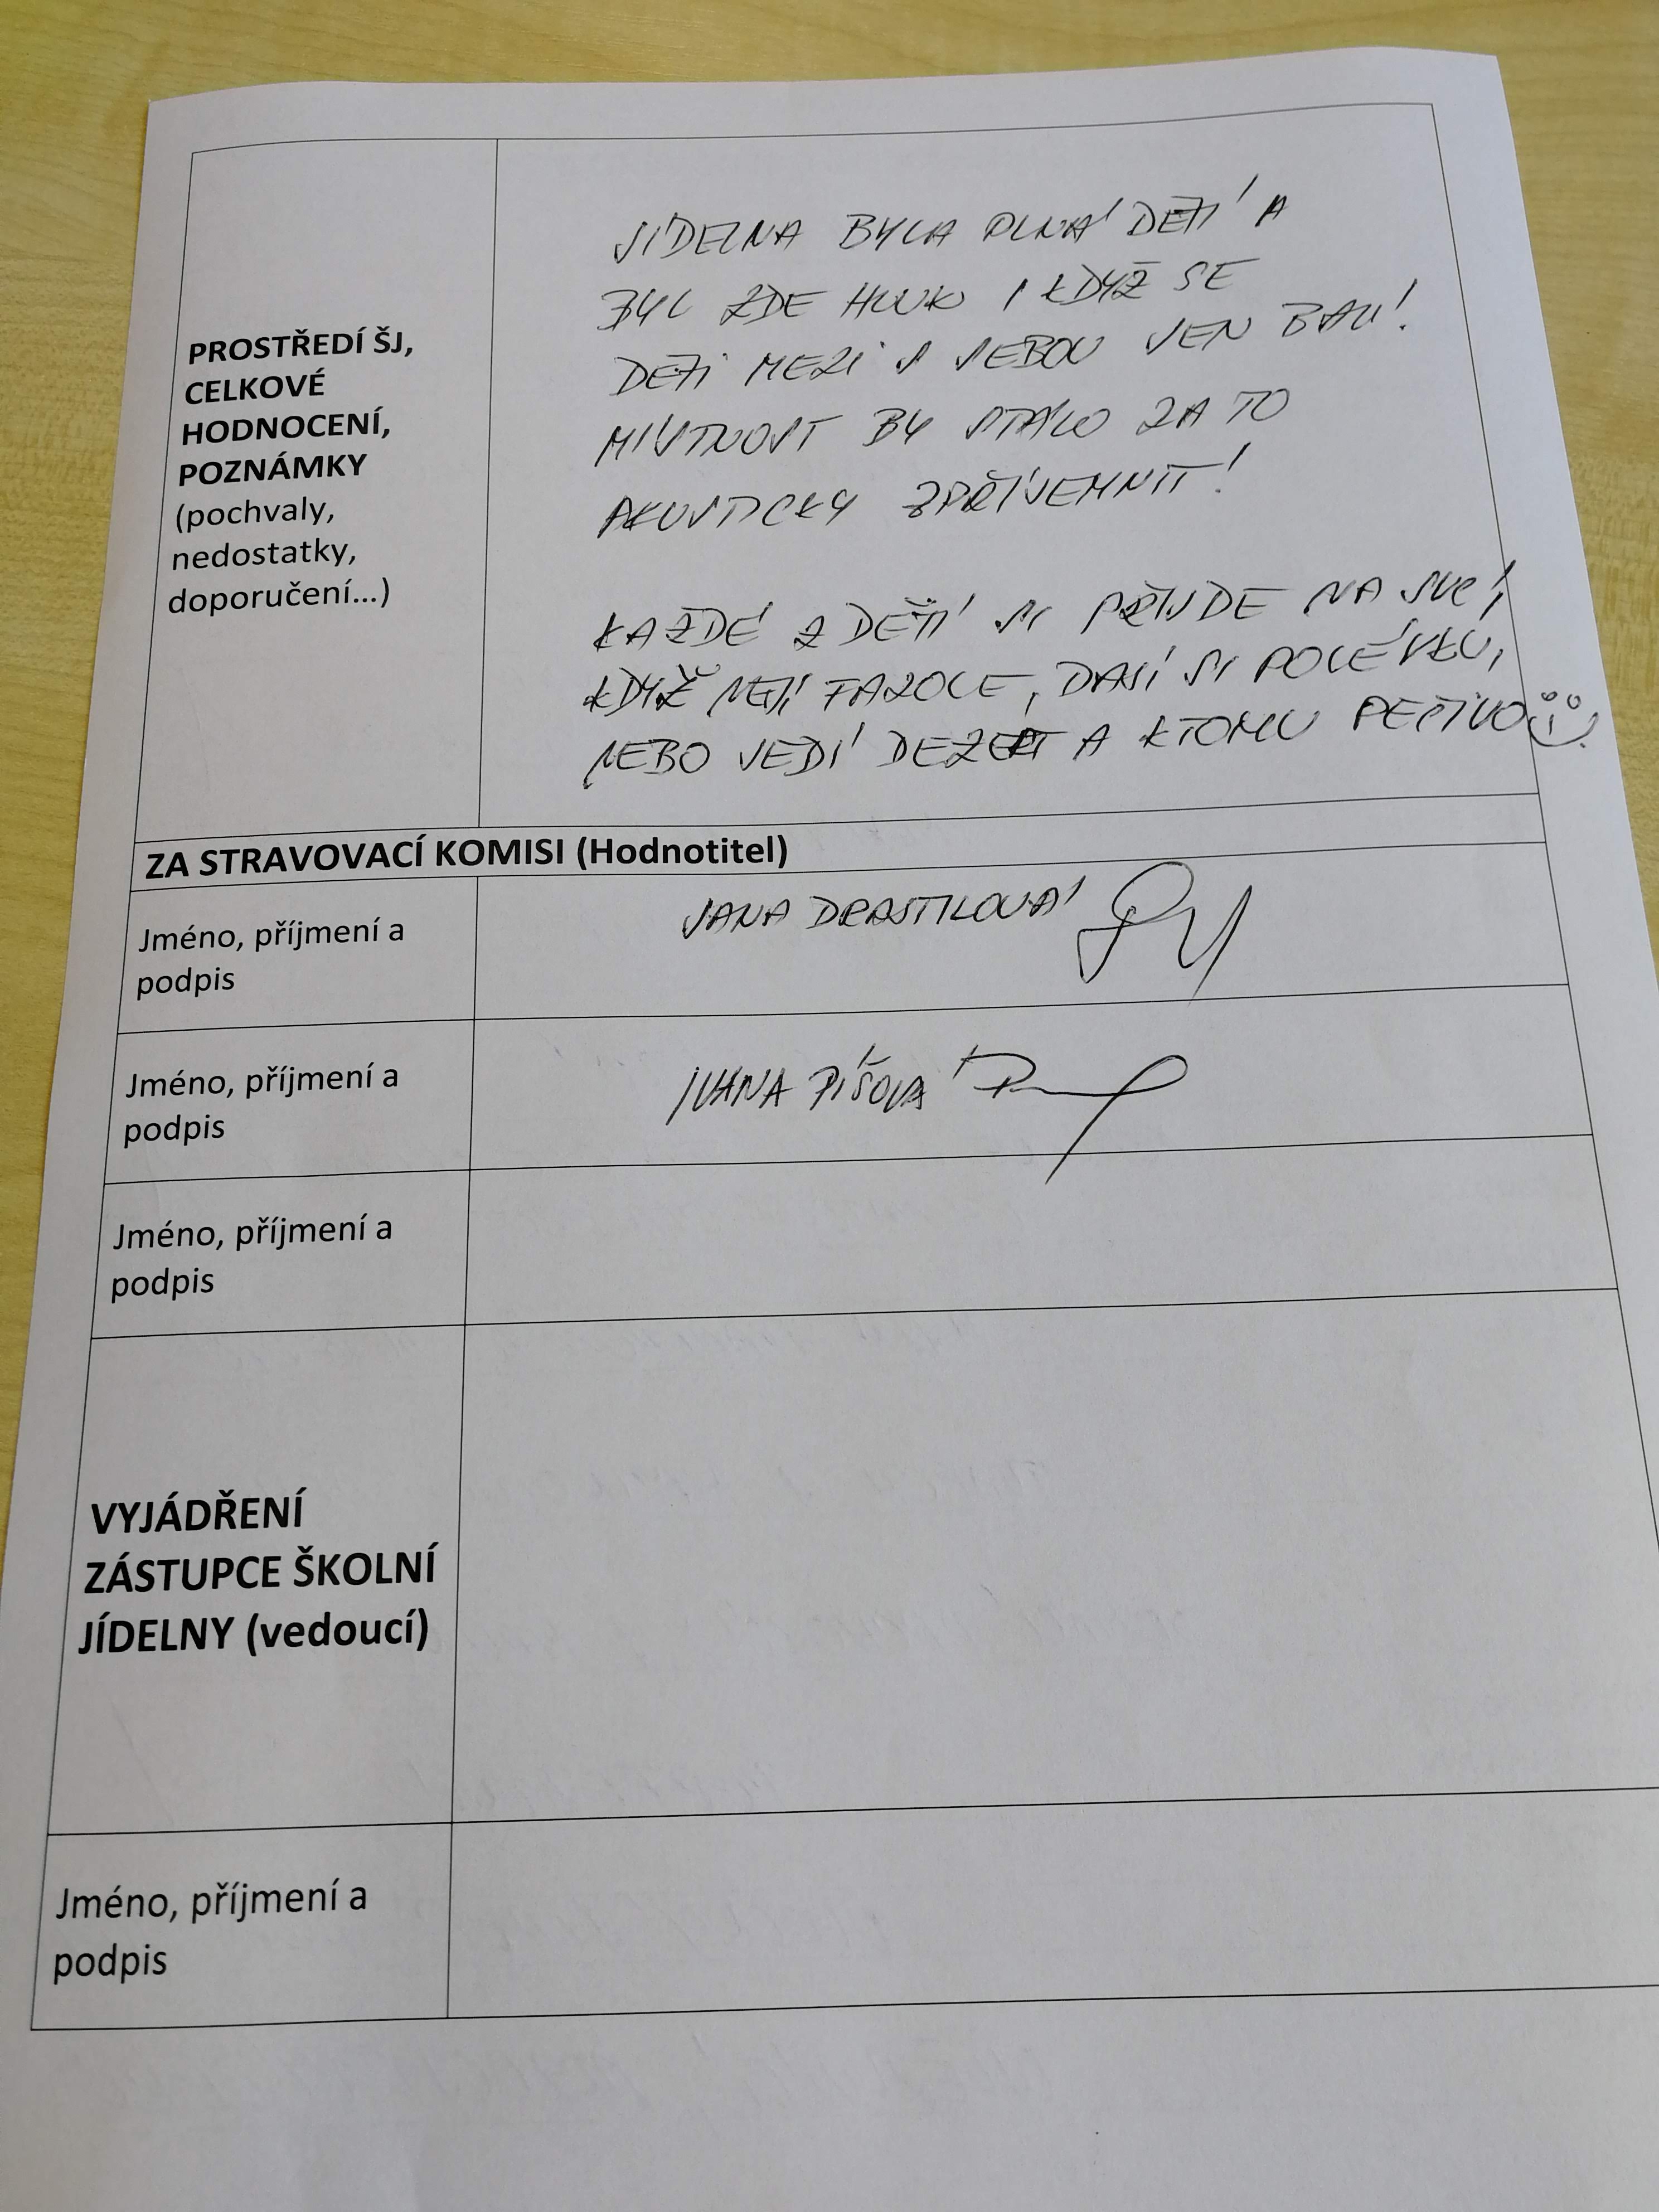 PROSTŘEDÍ ŠJ,
CELKOVÉ
HODNOCENÍ,
POZNÁMKY
(pochvaly,
nedostatky,
doporučení...)
JÍDELNA BYLA PLNÁ DĚTÍ A
BYL ZDE HLUK I KDYŽ SE
DĚTI MEZI S SEBOU JEN BAVÍ!
MÍSTNOST BY STÁLO ZA TO
AKUSTICKY ZPŘÍJEMNIT!
KAŽDÉ Z DĚTÍ SI PŘIJDE NA SVÉ,
KDYŽ NEJÍ FAZOLE, DAJÍ SI POLÉVKU,
NEBO JEDÍ DEZERT A KTOMU PEČIVO
ZA STRAVOVACÍ KOMISI (Hodnotitel)
Jméno, příjmení a
podpis
JANA DRASTILOVÁ
Jméno, příjmení a
podpis
IVANA PÍŠOVÁ
Jméno, příjmení a
podpis
VYJÁDŘENÍ
ZÁSTUPCE ŠKOLNÍ
JÍDELNY (vedoucí)
Jméno, příjmení a
podpis